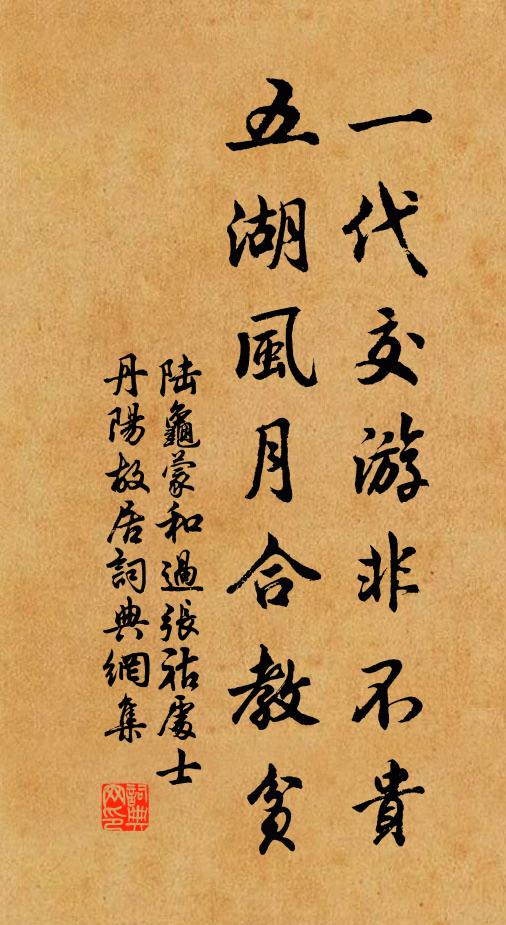 一代交游非不貴
五湖風月合教貧
陆龜蒙和過張祜處士
丹陽故居詞典網集
詞典网印